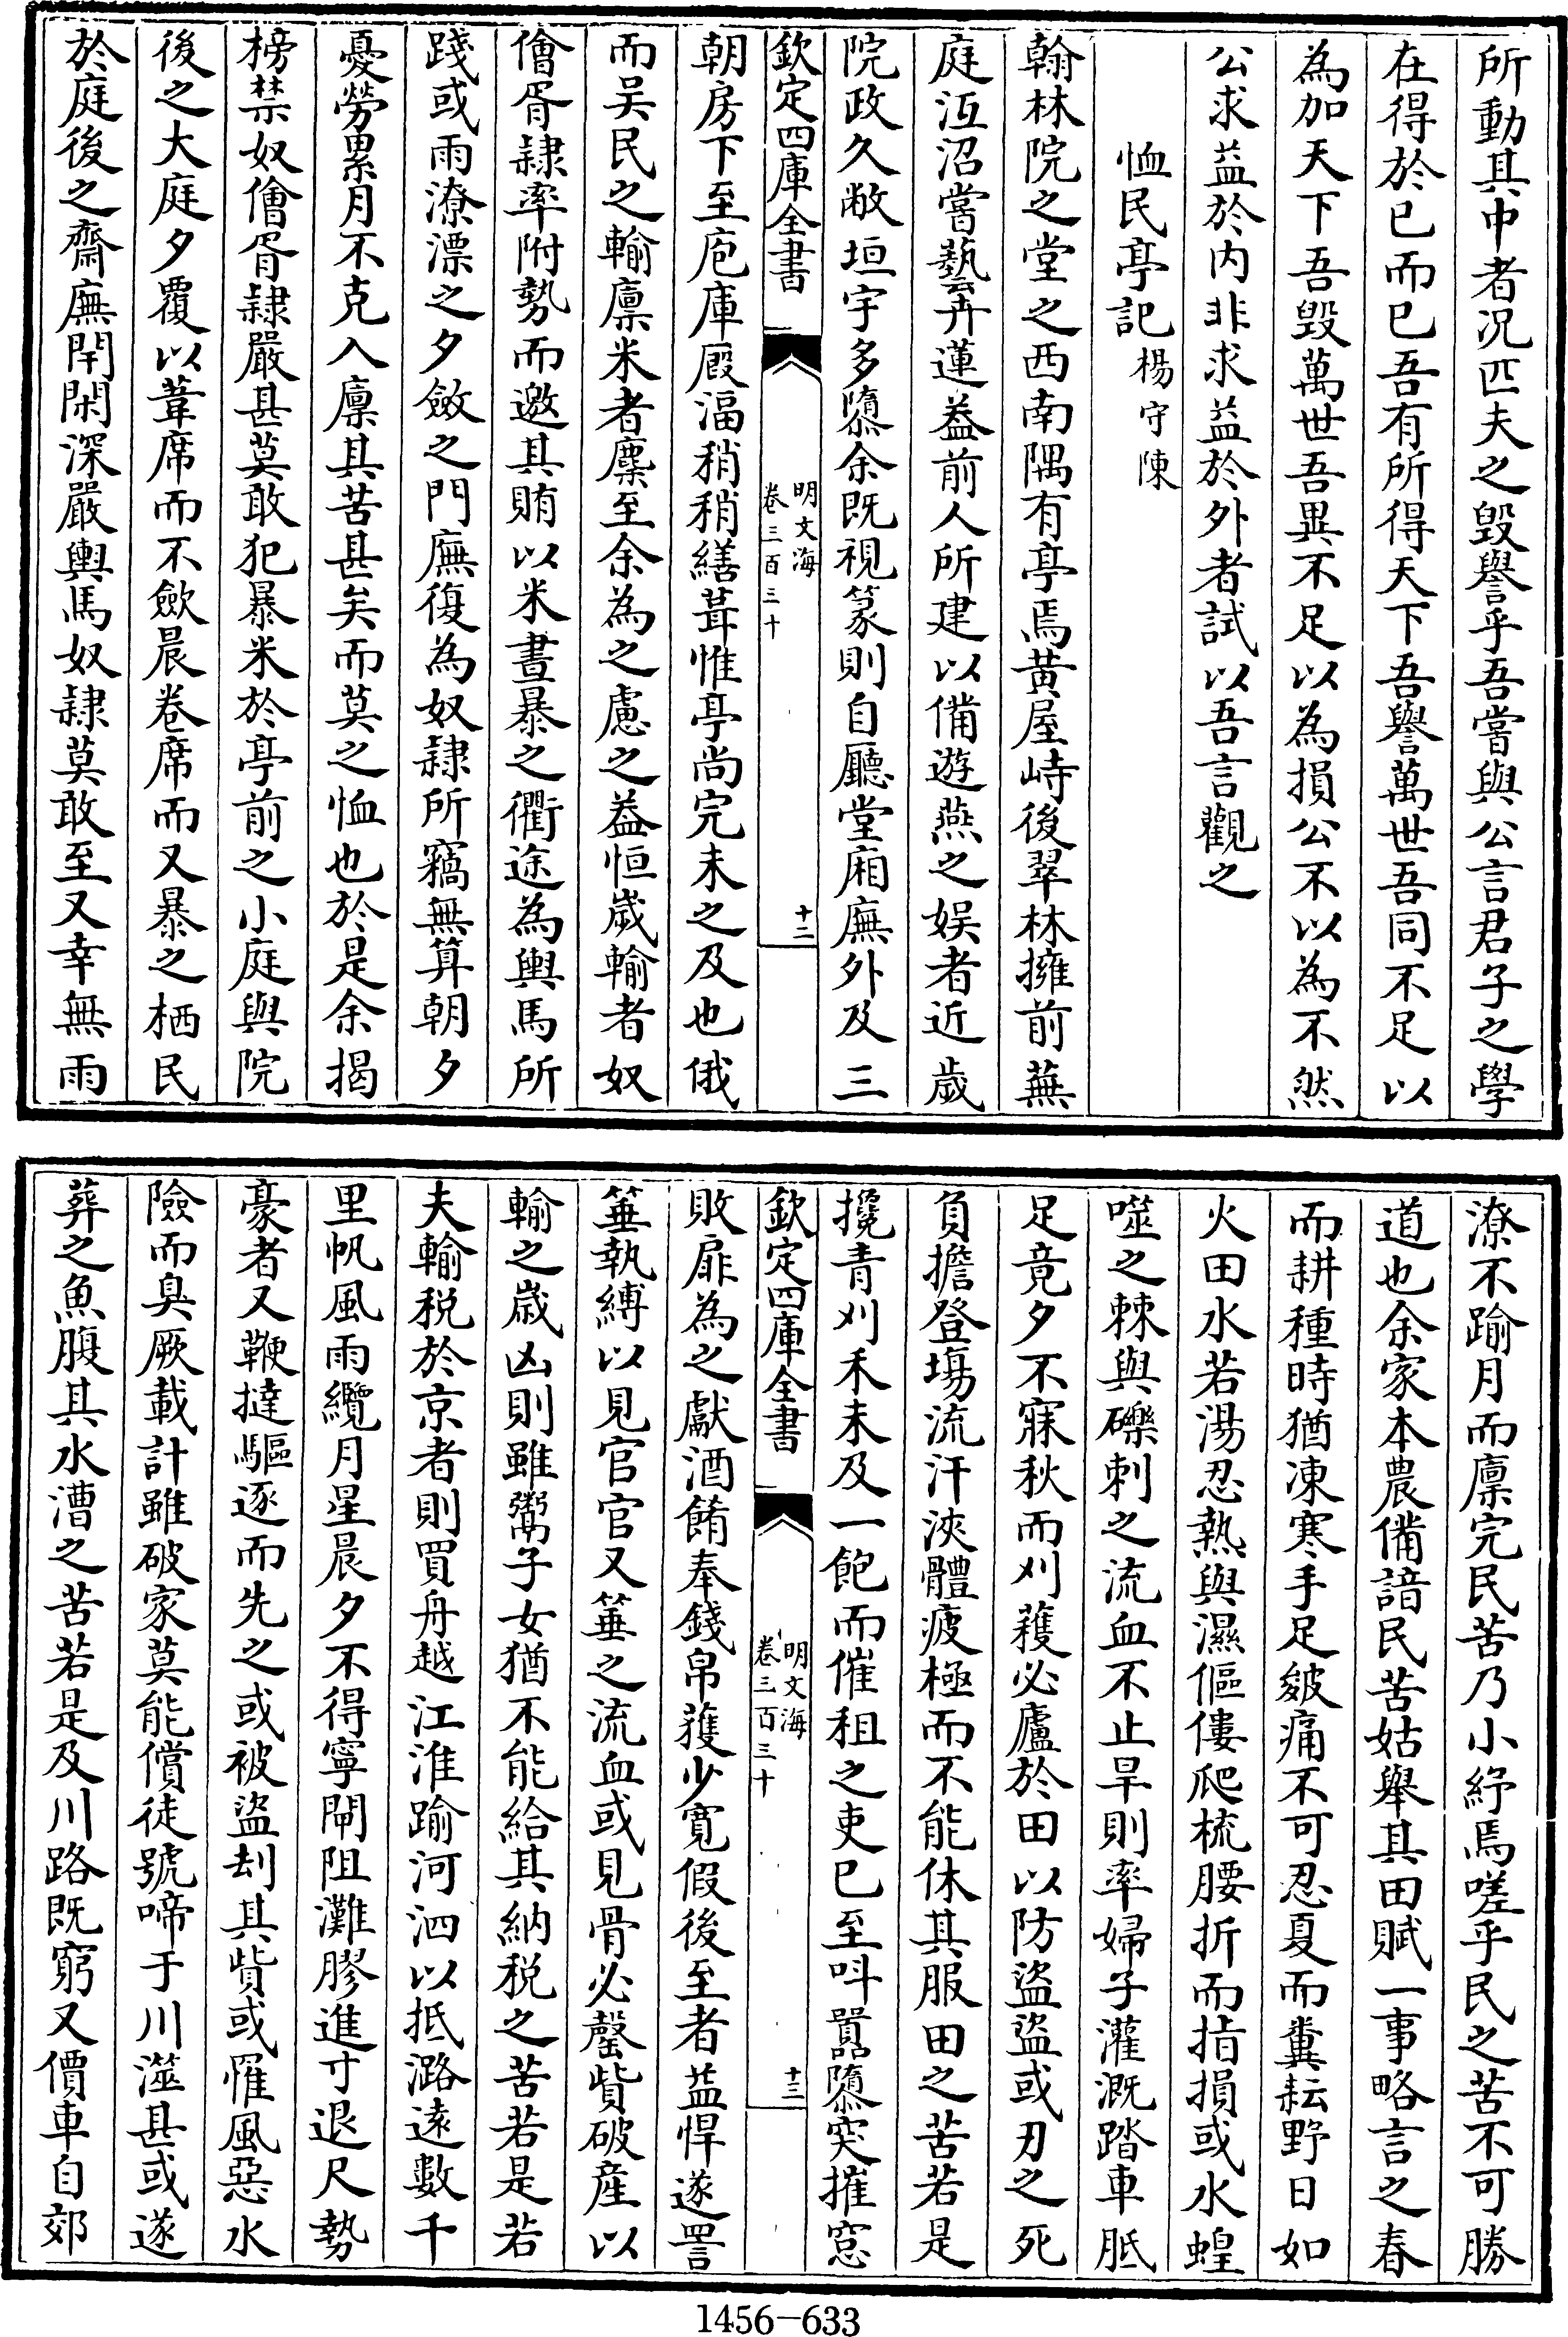 所動其中者况匹夫之毁譽乎吾嘗與公言君子之學
在得於已而已吾有所得天下吾譽萬世吾同不足以
為加天下吾毁萬世吾異不足以為損公不以為不然
公求益於内非求益於外者試以吾言觀之
恤民亭記楊守陳
翰林院之堂之西南隅有亭焉黄屋峙後翠林擁前蕪
庭沍沼嘗藝卉蓮葢前人所建以備遊燕之娱者近歲
院政久敝垣宇多隳余既視篆則自廳堂廂廡外及三
欽定四庫全書
明文海
卷三百三十
十二
朝房下至庖庫廄湢稍稍繕葺惟亭尚完未之及也俄
而吴民之輸廪米者麇至余為之慮之葢恒歲輸者奴
儈胥隸率附勢而邀其賄以米晝暴之衢途為輿馬所
踐或雨潦漂之夕斂之門廡復為奴隸所竊無算朝夕
憂勞累月不克入廪其苦甚矣而莫之恤也於是余揭
榜禁奴儈胥隸嚴甚莫敢犯暴米於亭前之小庭與院
後之大庭夕覆以葦席而不歛晨卷席而又暴之栖民
於庭後之齋廡閈閑深嚴輿馬奴隸莫敢至又幸無雨
潦不踰月而廪完民苦乃小紓焉嗟乎民之苦不可勝
道也余家本農備諳民苦姑舉其田賦一事略言之春
而耕種時猶凍寒手足皴痛不可忍夏而糞耘野日如
火田水若湯忍熱與濕傴僂爬梳腰折而指損或水蝗
噬之棘與礫刺之流血不止旱則率婦子灌溉踏車胝
足竟夕不寐秋而刈穫必廬於田以防盜盜或刃之死
負擔登場流汗浹體疲極而不能休其服田之苦若是
攙青刈禾未及一飽而催租之吏已至呌囂隳突摧窓
欽定四庫全書
明文海
卷三百三十
十三
敗扉為之獻酒餚奉錢帛蒦少寛假後至者益悍遂詈
箠執縛以見官官又箠之流血或見骨必罄貲破産以
輸之歳凶則雖鬻子女猶不能給其納税之苦若是若
夫輸税於京者則買舟越江淮踰河泗以抵潞遠數千
里帆風雨纜月星晨夕不得寧閘阻灘膠進寸退尺勢
豪者又鞭撻驅逐而先之或被盜刦其貲或罹風惡水
險而臭厥載計雖破家莫能償徒號啼于川澨甚或遂
葬之魚腹其水漕之苦若是及川路既窮又價車自郊
1456-633